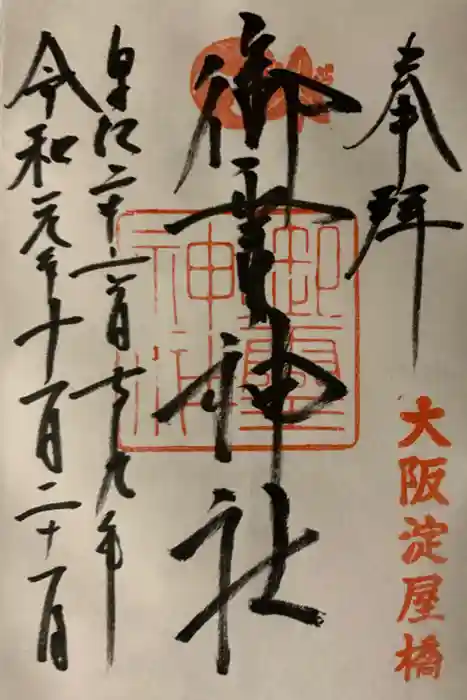 奉拝
大阪淀屋橋
御霊神社
御靈神社
皇紀二千六百七十九年
令和元年十一月二十一日